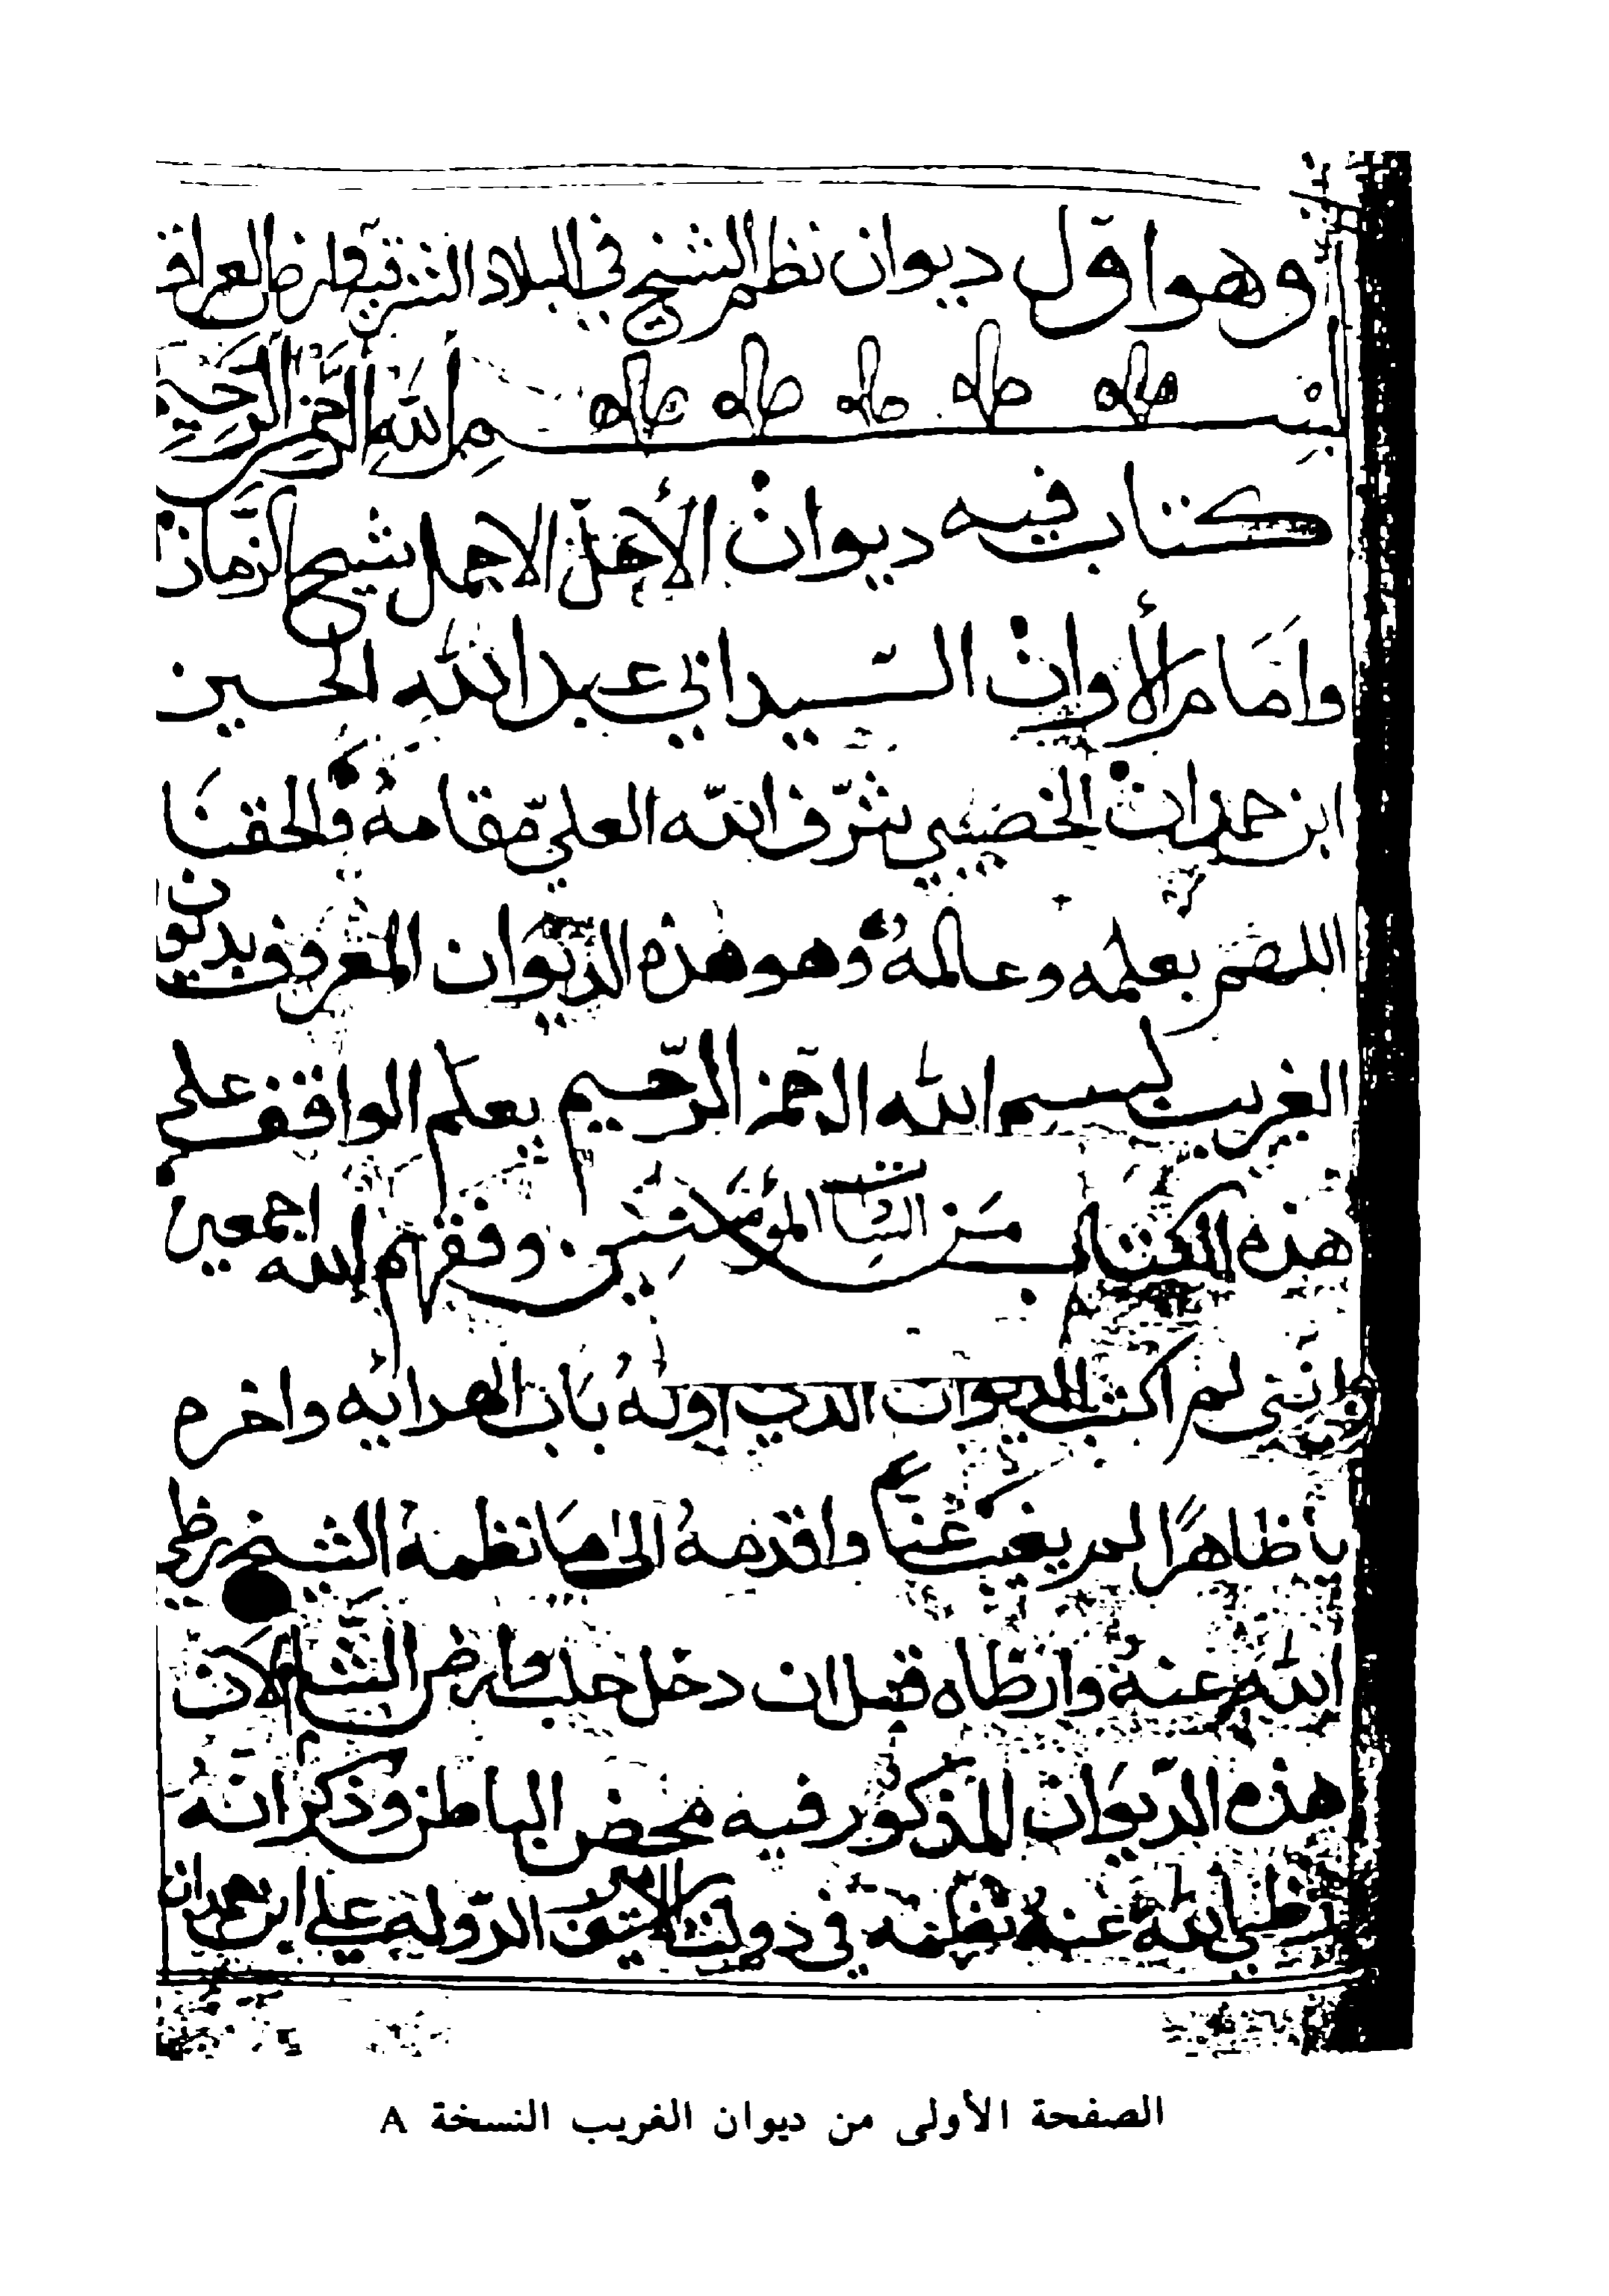 وهو اوّل ديوان نظم الشيخ في البلاد الشرقيه وارض العراق
بسم الله الرحمن الرحيم
طه طه طه طه طه
كتاب فيه ديوان الأجل الاجمل شيخ الزمان
وامام الأوان السيد ابي عبد الله الحسين
ابن حمدان الخصيبي شرّف الله العليّ مقامه والحقنا
اللهم بعلمه وعالمه وهو هذه الديوان المعروف بديوان
الغريب بسم الله الرحمن الرّحيم يعلم الواقف على
هذه الكتاب من المؤمنين وفقهم الله اجمعين
وانني لم اكتب الديوان الذي اوله باب الهدايه واخره
يا ظاهرًا لم يغب عنا واقدمه الى ما نظمه الشيخ رظي
الله عنه وارظاه قبل ان دخل حلب وارض الشام لان
هذه الديوان المذكور فيه محض الباطن وذكر انّه
رظي الله عنه نظمه في دولت الدّوله علي ابن حمدان
الصفحة الأولى من ديوان الغريب النسخة A